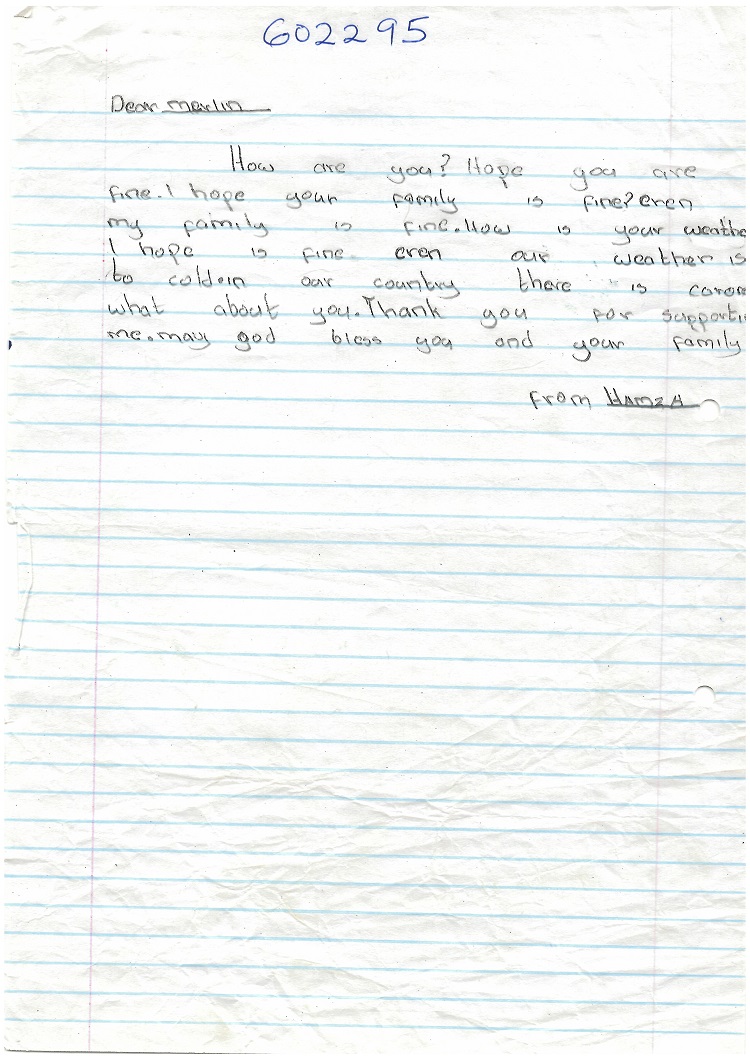 602295
Dear merlin
How are you? Hope you are
fine. I hope your family is fine? even
my family is fine. How is your weathe
I hope is fine even our weather is
to coldein our country there is coron
what about you. Thank you for supporti
me. may god bless you and your family
From HAMZA